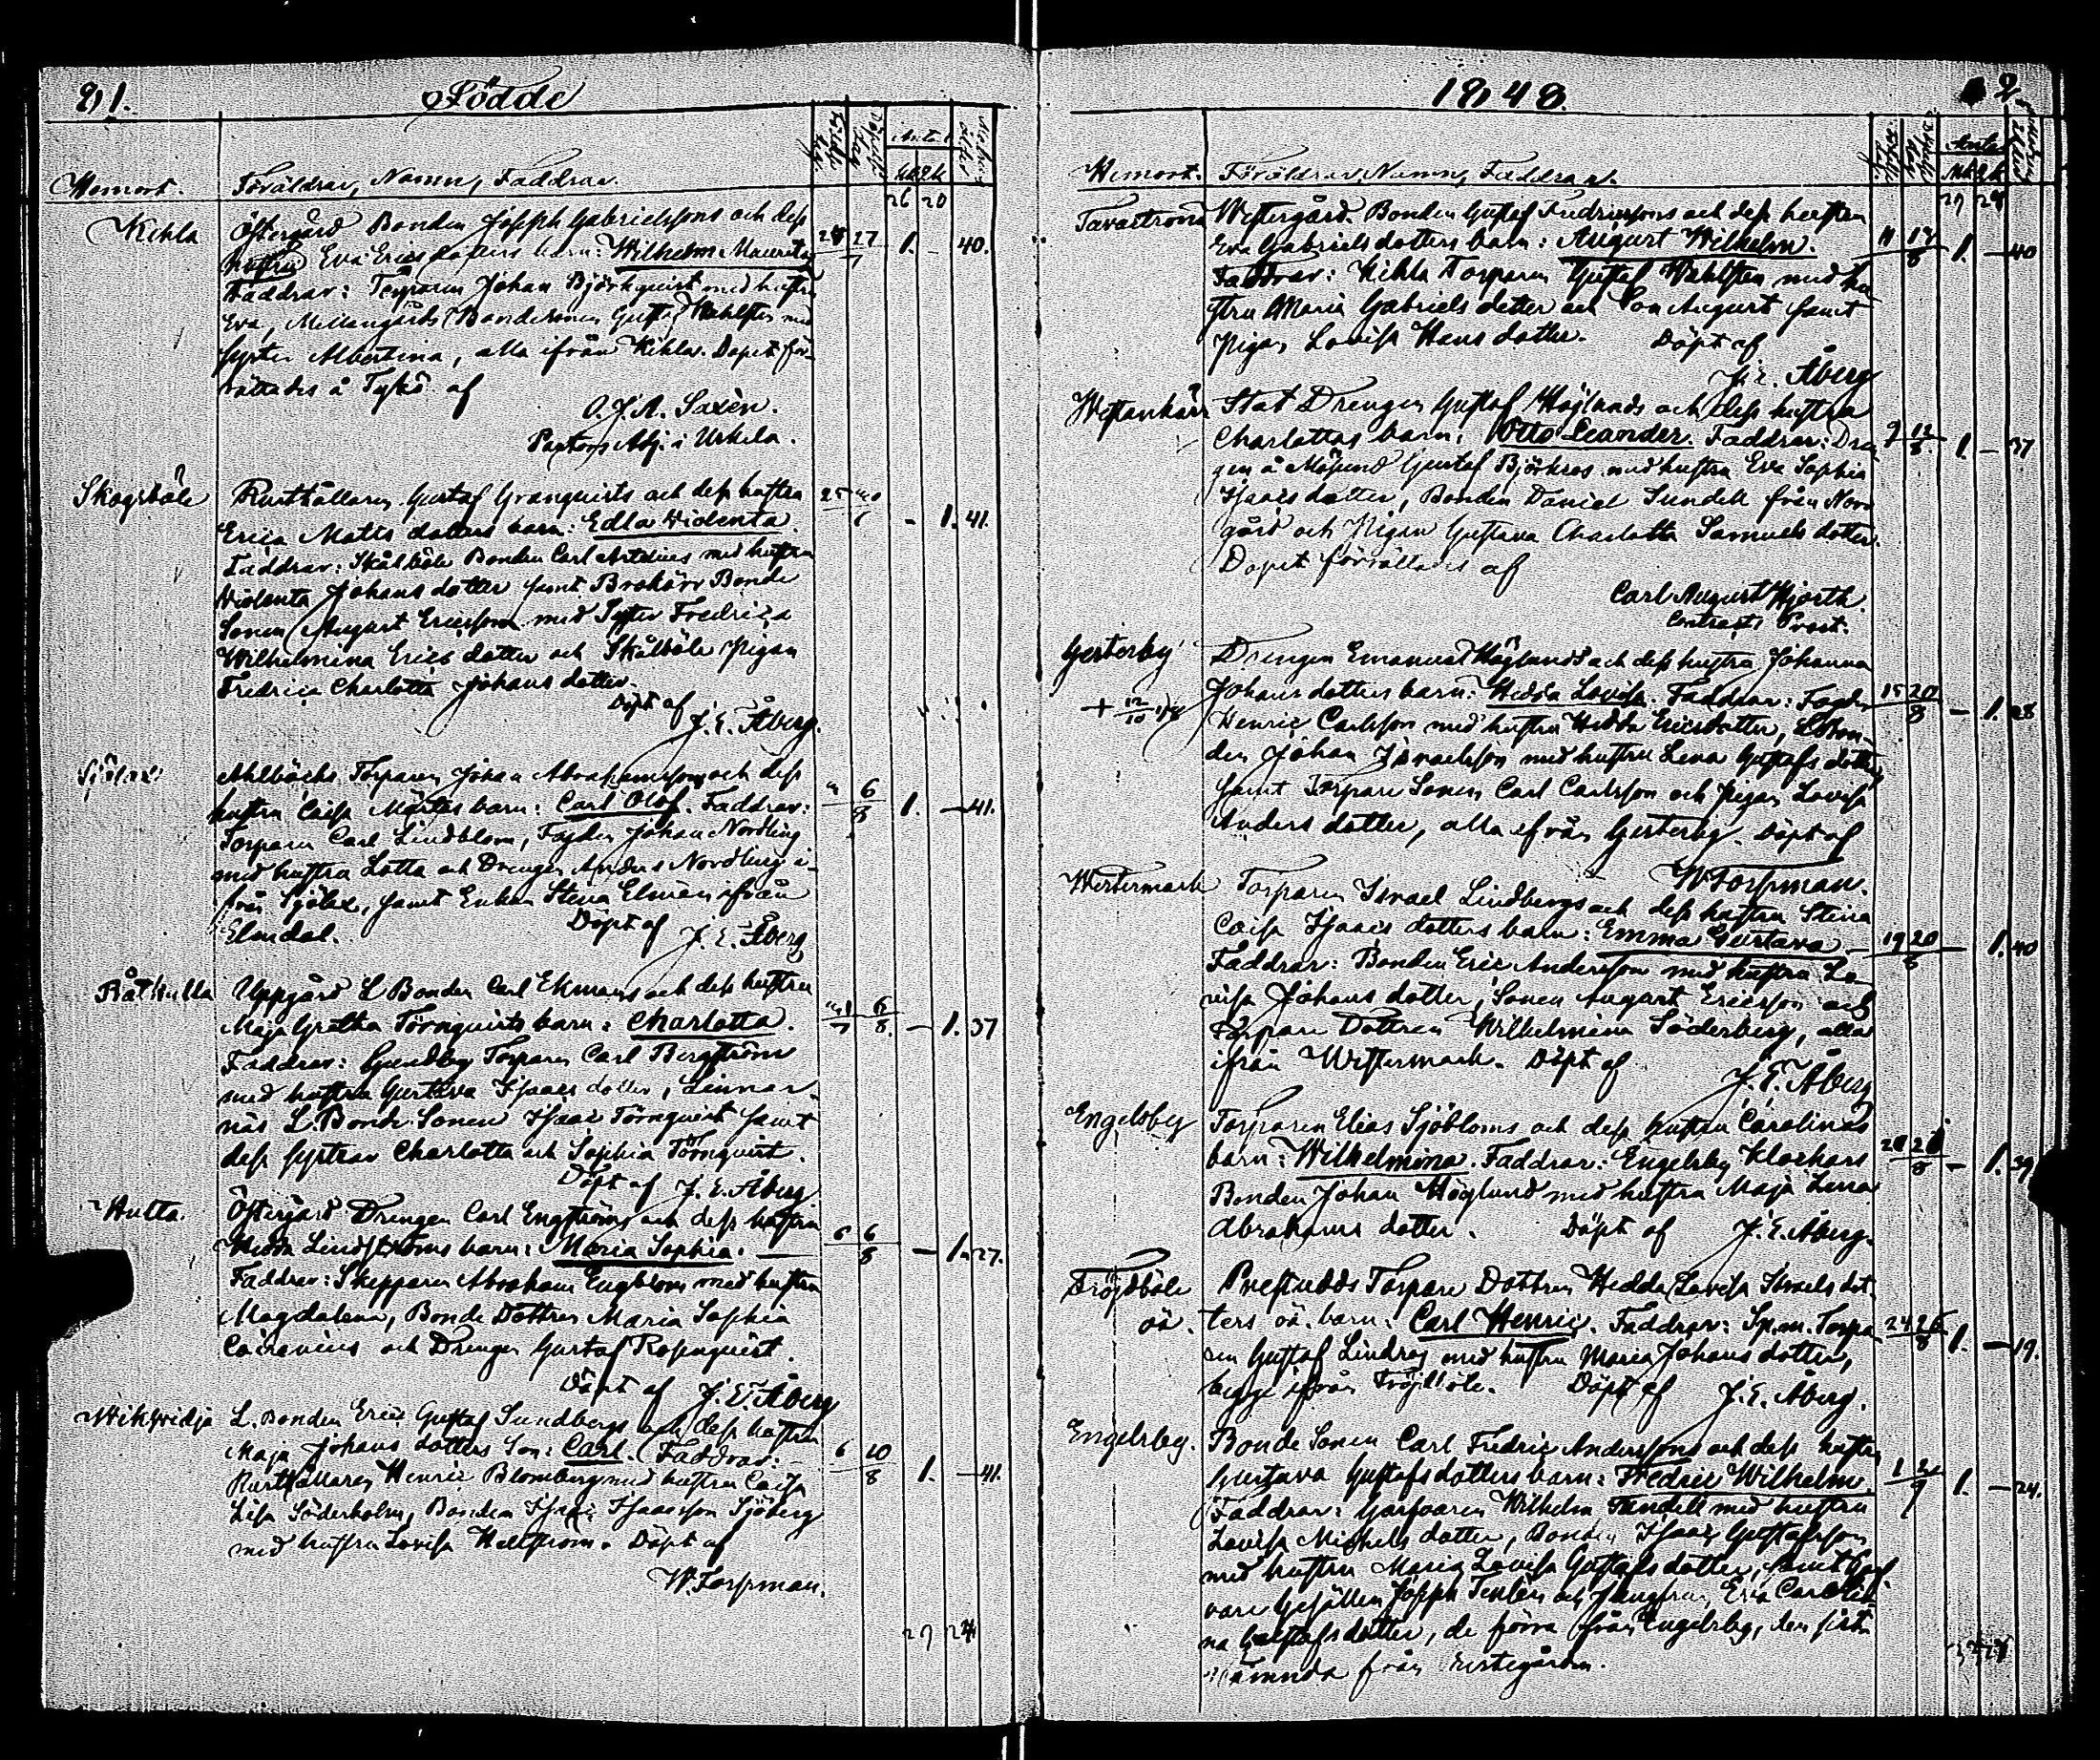 81. Födde
Hemort. Föräldrar, Namn, Faddrar.
26 20
Kihla Östergård Bonden Joseph Gabrielssons och dess
hustru Eva Erics dotters barn: Wilhelm Mauritz 27/7 1. – 40.
Faddrar: Torparen Johan Björkquist med hustru
Eva, Mellangårds Bondesonen Gustaf Wahlsten med
syster Albertina, alla ifrån Kihla. Dopet för-
rättades å Tykö af
O. J. A. Saxèn.
Pastors Adj. i Uskela.
Skogsböle Rusthållaren Gustaf Granquists och dess hustru 25
Erica Matts dotters barn: Edla Widenta. – 1. 41.
Faddrar: Skålböle Bonden Carl Artelius med hustru
Widenta Johans dotter samt Brokärr Bonde
Sonen August Ericsson med Syster Fredrica
Wilhelmina Erics dotter och Skålböle Pigan
Fredrica Charlotta Johans dotter.
Döpt af
J. E. Åberg.
Sjölax Ahlbäcks Torparen Johan Abrahamsson och dess
hustru Caisa Märtas barn: Carl Olof. Faddrar: 6/8 1. – 41.
Torparen Carl Lindblom, Fogden Johan Nordling
med hustru Lotta och Drengen Anders Nordling i-
från Sjölax, samt Enkan Stina Elman ifrån
Elmdal. Döpt af J. E. Åberg
Råkulla Uppgård L. Bonden Carl Ekmans och dess hustru
Maja Gretha Törnquists barn: Charlotta. 6/8. – 1. 37
Faddrar: Gundby Torparen Carl Bergström
med hustru Gustava Isaacs dotter, Linnar-
näs L. Bonde Sonen Isaac Törnquist samt
dess systrar Charlotta och Sophia Törnquist.
Döpt af J. E. Åberg
Hulta. Östergård Drengen Carl Engströms och dess hustru
Hedda Lindströms barn: Maria Sophia. 6 6/8 – 1. 27.
Faddrar: Skepparen Abraham Engblom med hustru
Magdalena, Bonde Dottren Maria Sophia
och Drengen Gustaf Rosenquist.
Döpt af J. E. Åberg
Wikwidja L. Bonden Eric Gustaf Sundbergs och dess hustru
Maja Johans dotters Son: Carl. Faddrar: 6 10/8 1. – 41.
Rusthållaren Henric Blomberg med hustru Caisa
Lisa Söderholm, Bonden Isaac Isaacsson Sjöberg
med hustru Lovisa Hellstrom. Döpt af
W. Forsman.
27 24
1848. 82
Hemort. Föräldrar, Namn, Faddrar.
27 24
Tavastrond Westergård Bonden Gustaf Fredricssons och dess hustru
Eva Gabriels dotters barn: August Wilhelm. 11 14/8 1. – 40
Faddrar: Kihla Torparen Gustaf Wahlsten med hu-
stru Maria Gabriels dotter och Son August samt
Pigan Lovisa Hans dotter. Döpt af
J. E. Åberg
Westankärr Stat Drengen Gustaf Höjlunds och dess hustru
Charlottas barn: Otto Leander. Faddrar: Dren- 9 12/8. 1. – 37
gen å Mösund Gustaf Björkros med hustru Eva Sophia
Isaacs dotter, Bonden Daniel Sundell från Norr
gård och Pigan Gustava Charlotta Samuels dotter.
Dopet förrättades af
Carl August Hjorth.
Contracts Prost.
Gesterby Drengen Emanuel Höglunds och dess hustru Johanna
Johans dotters barn: Hedda Lovisa. Faddrar: Fogden 15 20/8 – 1. 28
+ 12/10 48 Henric Carlsson med hustru Hedda Ericsdotter, L. Bon-
den Johan Israelsson med hustru Lena Gustafs dotter
samt Torpare Sonen Carl Carlsson och Pigan Lovisa
Anders dotter, alla ifrån Gesterby. Döpt af
W. Forsman.
Westermark Torparen Israel Lindbergs och dess hustru Stina
Caisa Isaacs dotters barn: Emma Gustava – 19 20/8 – 1. 40
Faddrar: Bonden Eric Andersson med hustru Lo-
visa Johans dotter, Sonen August Ericsson och
Torpare Dottren Wilhelmina Söderberg, alla
ifrån Westermark. Döpt af
J. E. Åberg
Engelsby Torparen Elias Sjöbloms och dess hustru Carolinas
barn: Wilhelmina. Faddrar: Engelsby Klockars – 1. 39
Bonden Johan Höglund med hustru Maja Lena
Abrahams dotter. Döpt af J. E. Åberg.
Fröjdböle Prestudds Torpare Dottren Hedda Lovisa Israels dot-
oä. ters oä. barn: Carl Henric. Faddrar: Sp. m. Torpa- 24 26/8 1. – 19.
ren Gustaf Lindros med hustru Maria Johans dotter,
begge ifrån Fröjdböle. Döpt af J. E. Åberg.
Engelsby. Bonde Sonen Carl Fredric Anderssons och dess hustru
Gustava Gustafs dotters barn: Fredric Wilhelm 1. – 24.
Faddrar: Garfvaren Wilhelm Tendell med hustru
Lovisa Michels dotter, Bonden Isaac Gustafsson
med hustru Maria Lovisa Gustafs dotter, samt Garf-
vare Gesällen Joseph och Jungfrun Eva Caroli-
na Gustafs dotter, de förra från Engelsby, den sist-
nämnda från